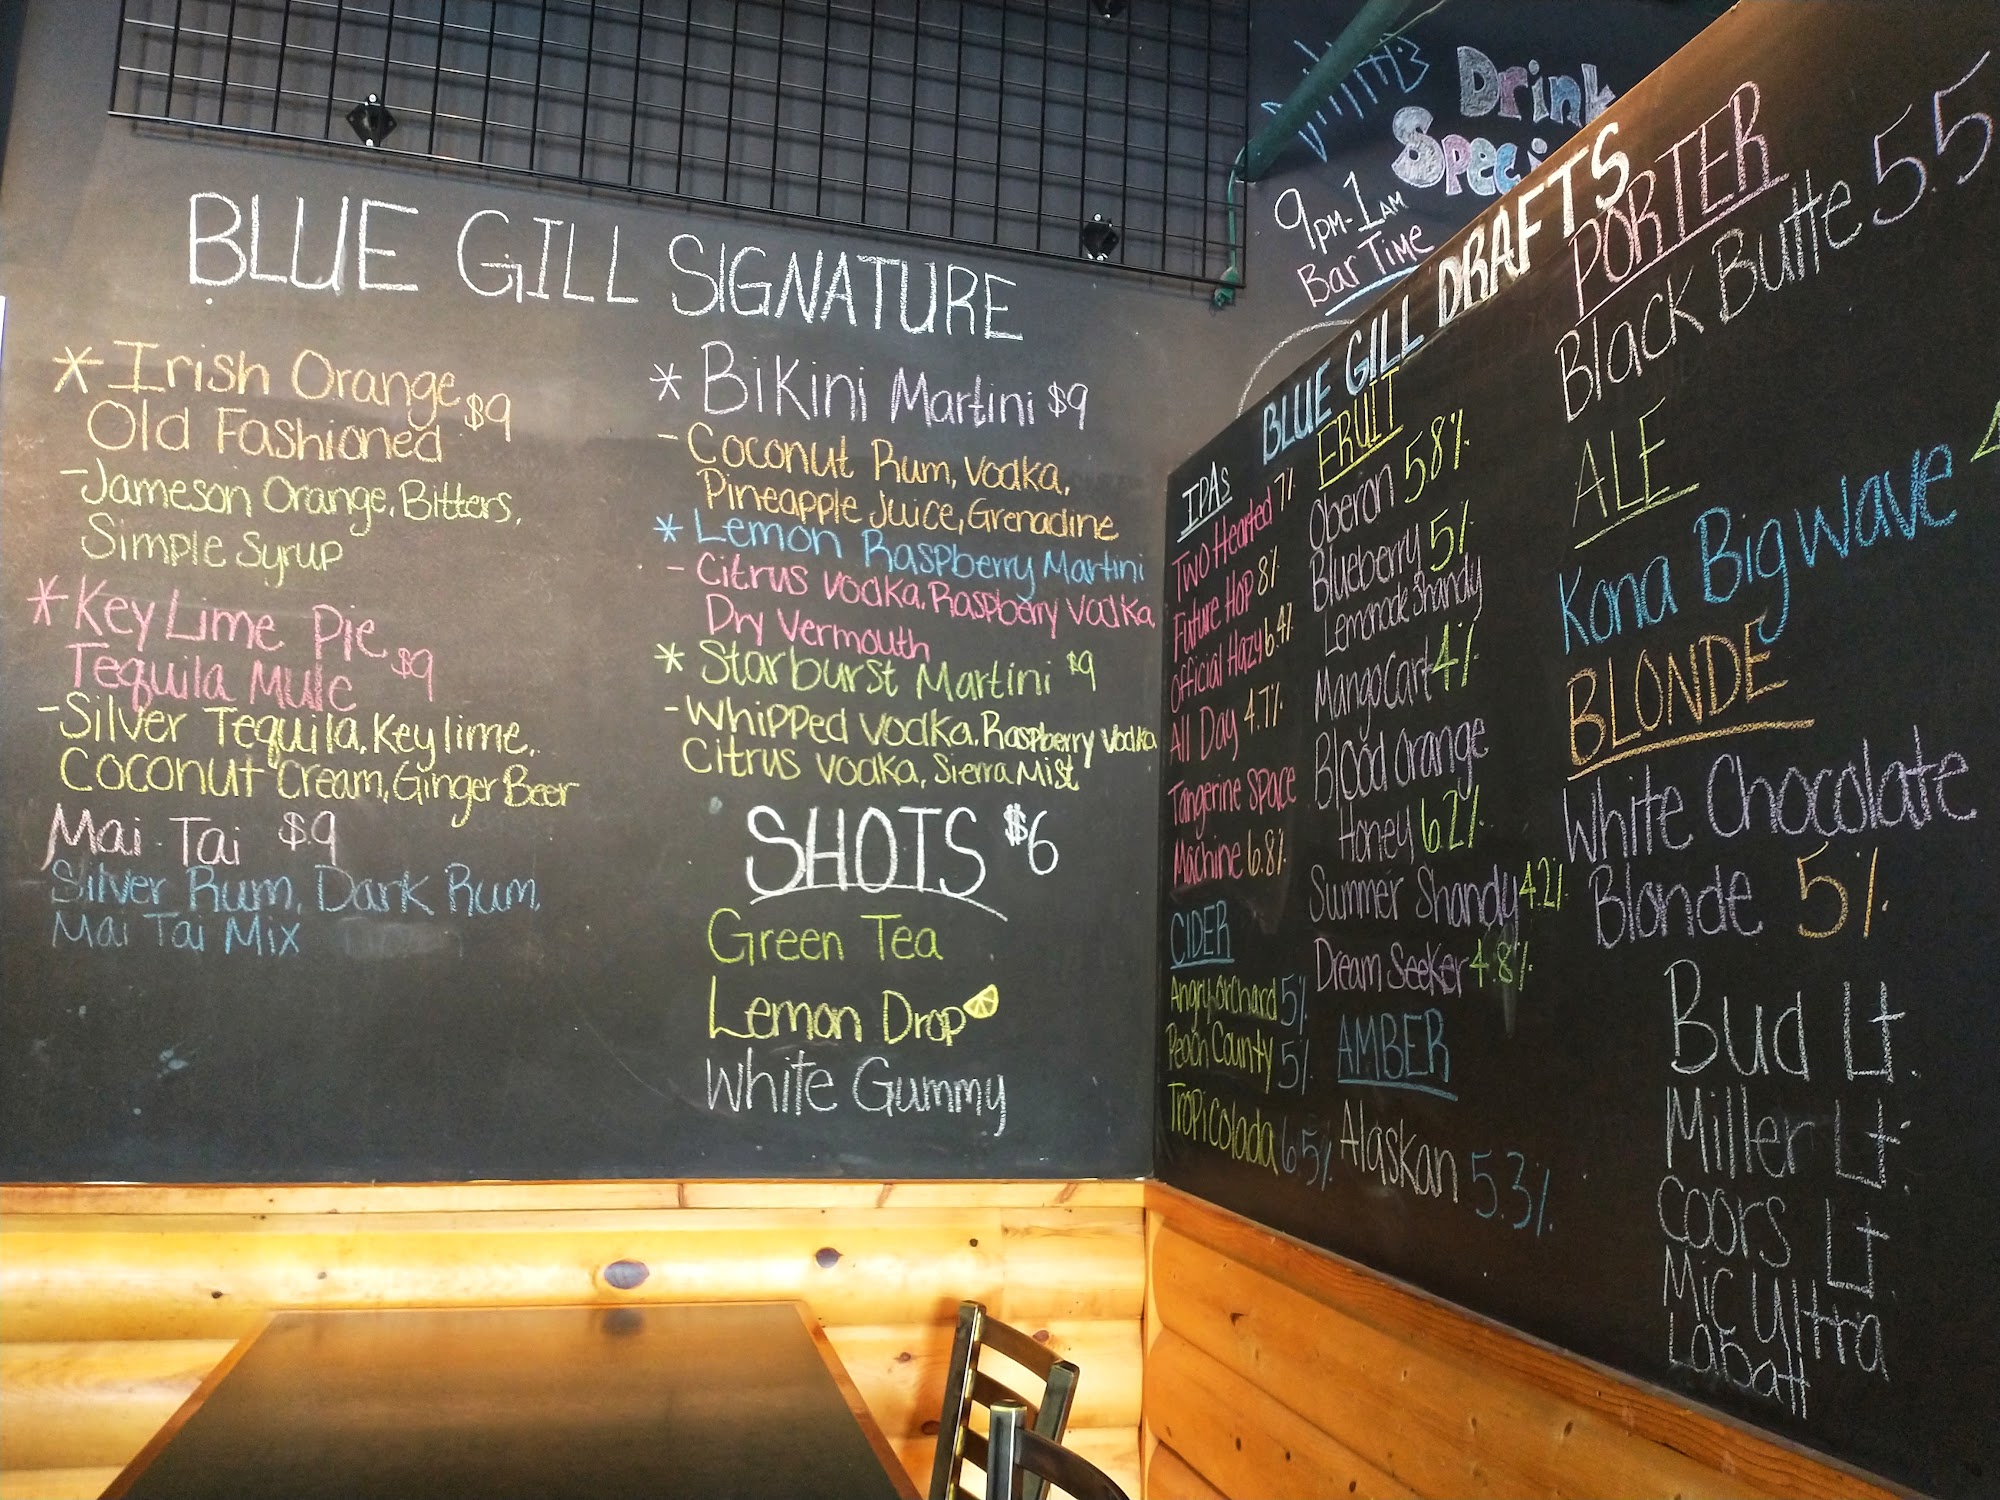 BLUE GILL SIGNATURE
* Irish Orange
Old Fashioned $9
- Jameson Orange, Bitters,
Simple Syrup
* Key Lime Pie
Tequila Mule $9
- Silver Tequila, Key lime,
Coconut Cream, Ginger Beer
Mai Tai $9
Silver Rum, Dark Rum,
Mai Tai Mix
* Bikini Martini $9
- Coconut Rum, Vodka,
Pineapple Juice, Grenadine
* Lemon Raspberry Martini
- Citrus Vodka, Raspberry Vodka,
Dry Vermouth
* Starburst Martini $9
- Whipped Vodka, Raspberry Vodka
Citrus Vodka, Sierra Mist
SHOTS $6
Green Tea
Lemon Drop
White Gummy
Drink
Speci
9PM-1AM
Bar Time
BLUE GILL DRAFTS
IPAs
Two Hearted 7%
Future Hop 8%
Official Hazy 6.4%
All Day 4.7%
Tangerine Space
Machine 6.8%
CIDER
Angry Orchard 5%
Peach County 5%
Tropicolada 6.5%
FRUIT
Oberon 5.8%
Blueberry 5%
Lemonade Shandy
Mango Cart 4%
Blood Orange
Honey 6.2%
Summer Shandy 4.2%
Dream Seeker 4.8%
AMBER
Alaskan 5.3%
PORTER
Black Butte 5.5
ALE
Kona Big Wave 4
BLONDE
White Chocolate
Blonde 5%
Bud Lt.
Miller Lt.
Coors Lt.
Mic Ultra
Labatt